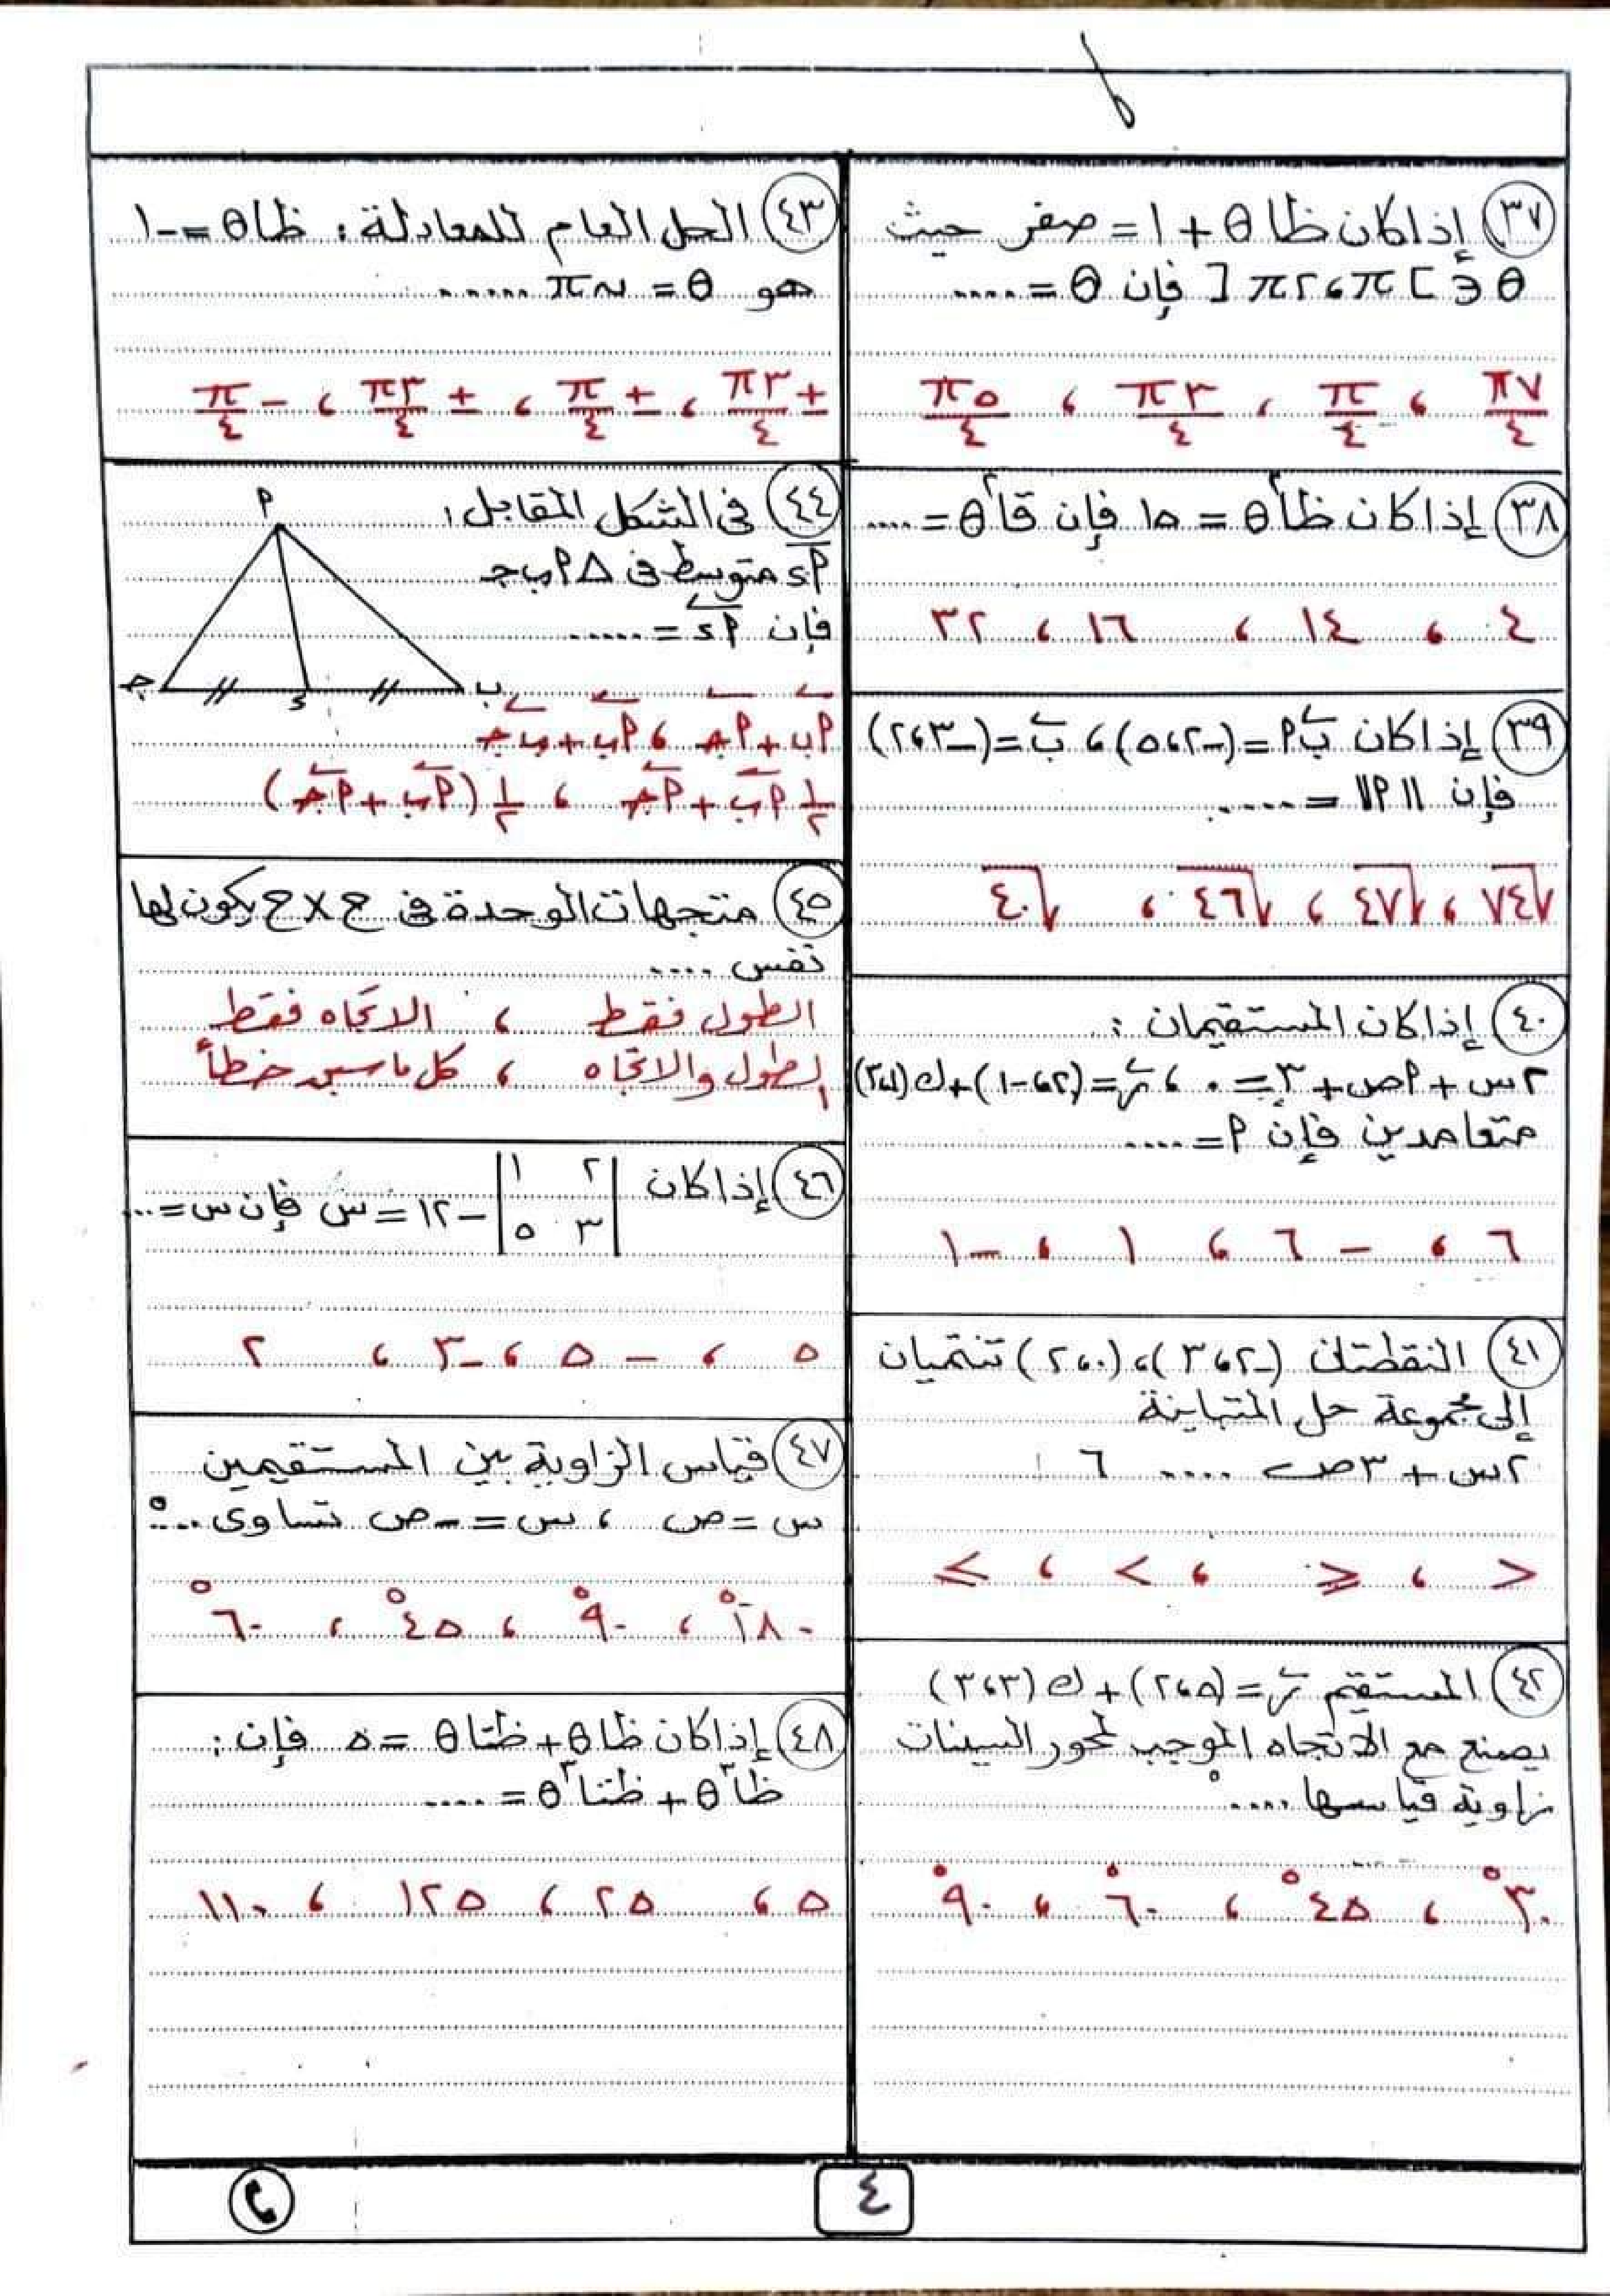 ٣٧ إذا كان ظا θ + ١ = صفر حيث
θ ∈ [π ، ٢π] فإن θ = ....
٧π/٤ ، π/٤ ، ٣π/٤ ، ٥π/٤
٣٨ إذا كان ظا٢θ = ١٥ فإن قا٢θ = ....
٤ ، ١٤ ، ١٦ ، ٣٢
٣٩ إذا كان أب = (-٢ ، ٥) ، ب = (-٣ ، ٢)
فإن ||أ|| = ....
√٧٤ ، √٤٧ ، √٤٦ ، √٤٠
٤٠ إذا كان المستقيمان :
٢س + أص + ٣ = ٠ ، ر = (٢ ، -١) + ك (٣ ، ١)
متعامدين فإن أ = ....
٦ ، -٦ ، ١ ، -١
٤١ النقطتان (-٢ ، ٣) ، (٠ ، ٢) تنتميان
إلى مجموعة حل المتباينة
٢س + ٣ص .... ٦
> ، ≥ ، < ، ≤
٤٢ المستقيم ر = (٥ ، ٢) + ك (٣ ، ٣)
يصنع مع الاتجاه الموجب لمحور السينات
زاوية قياسها ....°
٣٠° ، ٤٥° ، ٦٠° ، ٩٠°
٤٣ الحل العام للمعادلة : ظا θ = -١
هو θ = πن ......
± ٣π/٤ ، ± π/٤ ، ± ٣π/٤ ، - π/٤
٤٤ فى الشكل المقابل :
أء متوسط فى Δ أ ب جـ
فإن أء = ......
أ
جـ
ء
ب
أب + أجـ ، أب + ب جـ
١/٢ أب + أجـ ، ١/٢ (أب + أجـ)
٤٥ متجهات الوحدة فى ح × ح يكون لها
نفس ....
الطول فقط ، الاتجاه فقط
الطول والاتجاه ، كل ما سبق خطأ
٤٦ إذا كان |٢ ١
٣ ٥| - ١٢ = س فإن س = ...
٥ ، -٥ ، -٣ ، ٢
٤٧ قياس الزاوية بين المستقيمين
س = ص ، س = -ص تساوى ...°
١٨٠° ، ٩٠° ، ٤٥° ، ٦٠°
٤٨ إذا كان ظا θ + ظتا θ = ٥ فإن :
ظا٣θ + ظتا٣θ = ....
٥ ، ٢٥ ، ١٢٥ ، ١١٠
٤